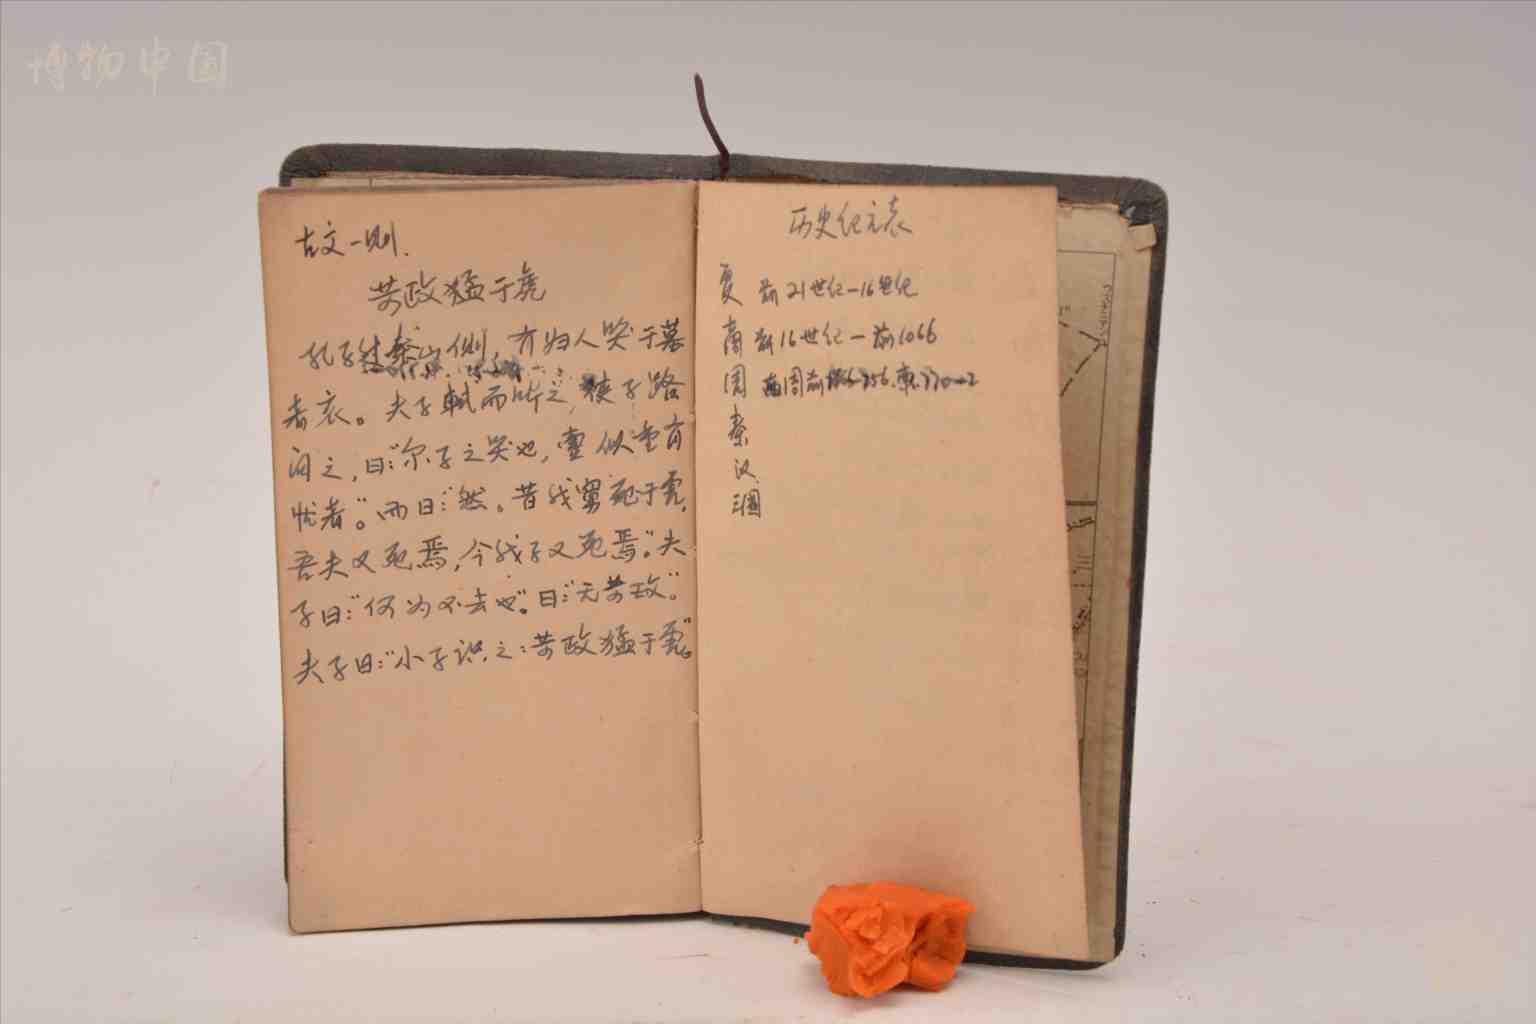 博物中国
古文一则.
苛政猛于虎
孔子过泰山侧，有妇人哭于墓
者哀。夫子轼而听之，使子路
问之，曰：“尔子之哭也，壹似重有
忧者”。而曰：“然。昔我舅死于虎，
吾夫又死焉，今我子又死焉。”夫
子曰：“何为不去也”。曰：“无苛政”。
夫子曰：“小子识之：苛政猛于虎”。
历史纪元表
夏 前21世纪—16世纪
商 前16世纪—前1066
周 西周前
秦
汉
三国